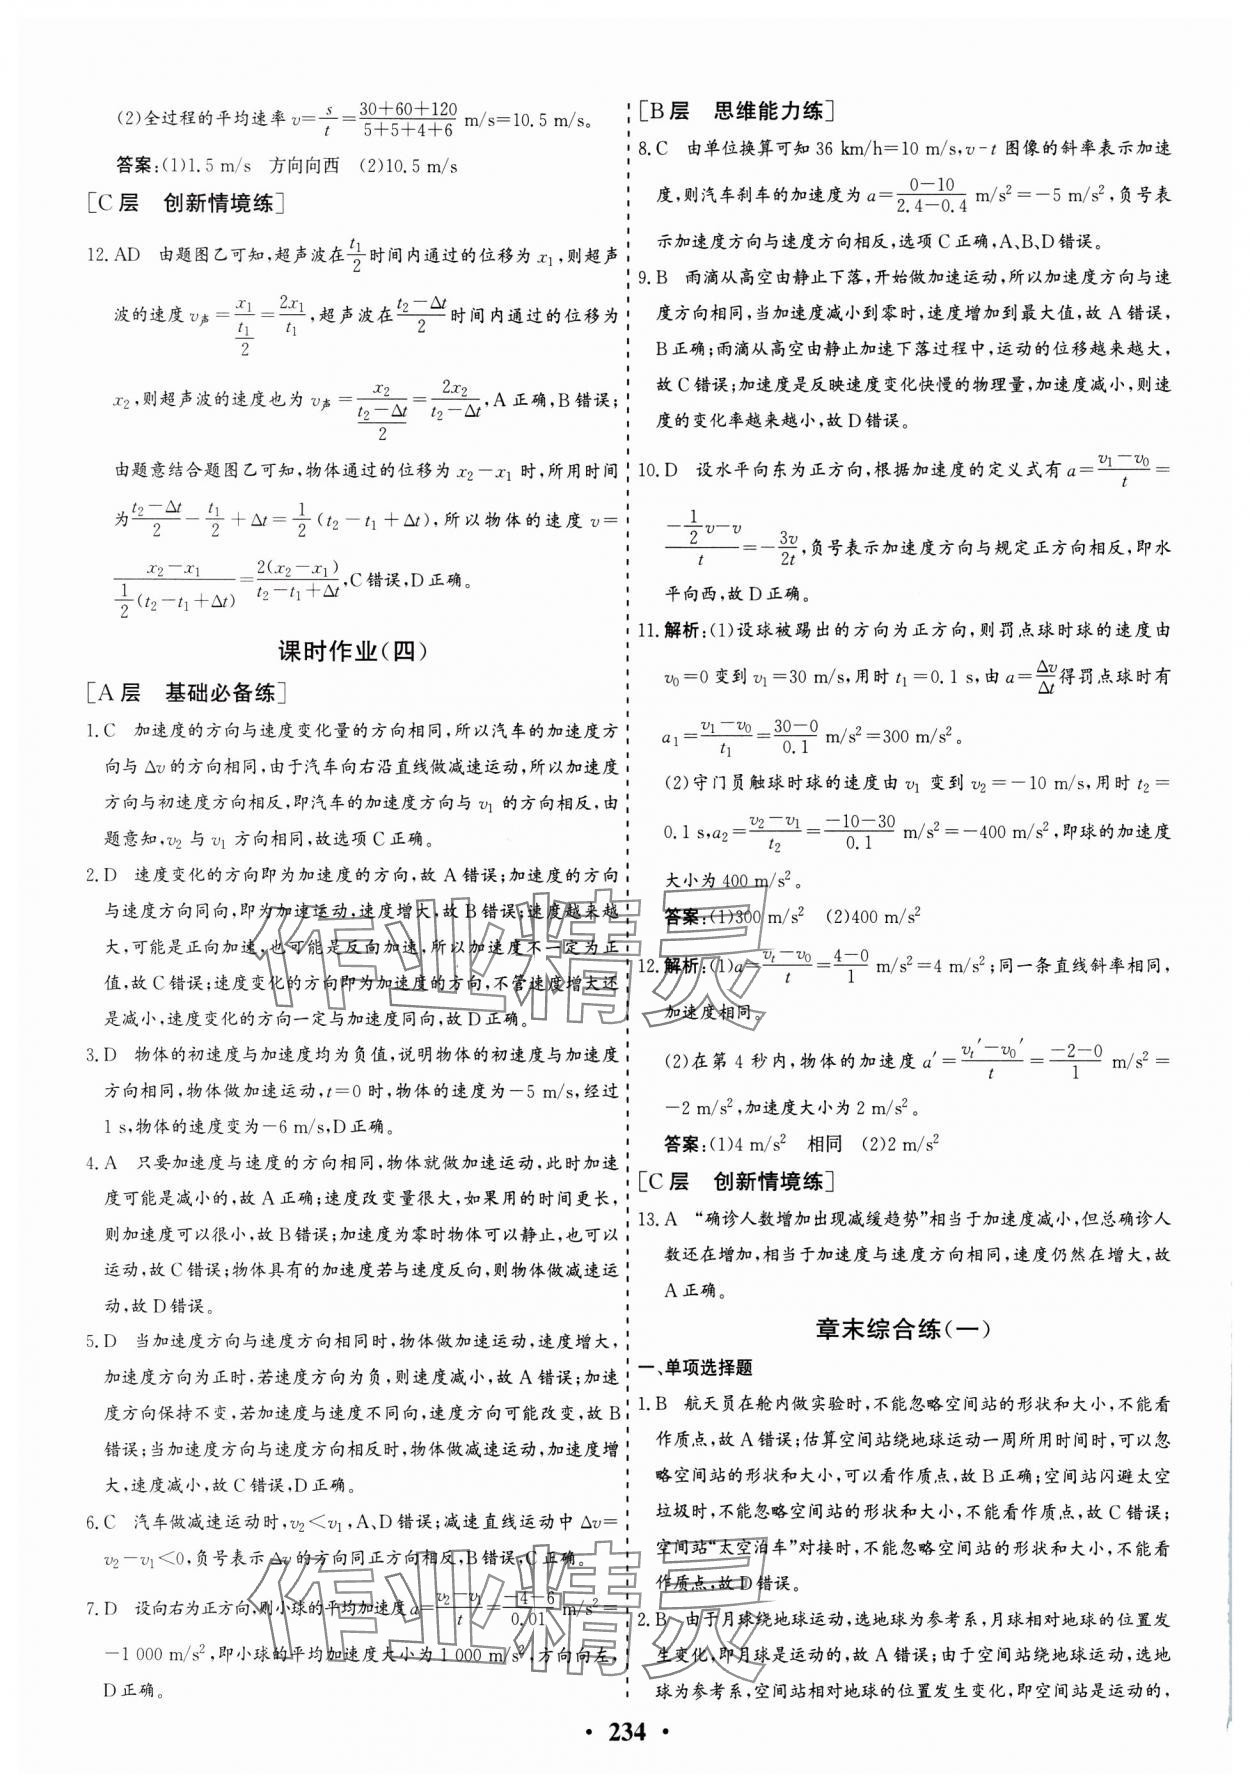 (2)全过程的平均速率 v=s/t=(30+60+120)/(5+5+4+6) m/s=10.5 m/s。
答案:(1)1.5 m/s　方向向西　(2)10.5 m/s
[C层　创新情境练]
12.AD　由题图乙可知,超声波在t₁/2时间内通过的位移为 x₁,则超声
波的速度 v声=x₁/(t₁/2)=2x₁/t₁,超声波在(t₂-Δt)/2时间内通过的位移为
x₂,则超声波的速度也为 v声=x₂/((t₂-Δt)/2)=2x₂/(t₂-Δt),A正确,B错误;
由题意结合题图乙可知,物体通过的位移为 x₂-x₁ 时,所用时间
为(t₂-Δt)/2-t₁/2+Δt=1/2(t₂-t₁+Δt),所以物体的速度 v=
(x₂-x₁)/(1/2(t₂-t₁+Δt))=2(x₂-x₁)/(t₂-t₁+Δt),C错误,D正确。
课时作业(四)
[A层　基础必备练]
1.C　加速度的方向与速度变化量的方向相同,所以汽车的加速度方
向与 Δv 的方向相同,由于汽车向右沿直线做减速运动,所以加速度
方向与初速度方向相反,即汽车的加速度方向与 v₁ 的方向相反,由
题意知,v₂ 与 v₁ 方向相同,故选项C正确。
2.D　速度变化的方向即为加速度的方向,故A错误;加速度的方向
与速度方向同向,即为加速运动,速度增大,故B错误;速度越来越
大,可能是正向加速,也可能是反向加速,所以加速度不一定为正
值,故C错误;速度变化的方向即为加速度的方向,不管速度增大还
是减小,速度变化的方向一定与加速度同向,故D正确。
3.D　物体的初速度与加速度均为负值,说明物体的初速度与加速度
方向相同,物体做加速运动,t=0时,物体的速度为-5 m/s,经过
1 s,物体的速度变为-6 m/s,D正确。
4.A　只要加速度与速度的方向相同,物体就做加速运动,此时加速
度可能是减小的,故A正确;速度改变量很大,如果用的时间更长,
则加速度可以很小,故B错误;加速度为零时物体可以静止,也可以
运动,故C错误;物体具有的加速度若与速度反向,则物体做减速运
动,故D错误。
5.D　当加速度方向与速度方向相同时,物体做加速运动,速度增大,
加速度方向为正时,若速度方向为负,则速度减小,故A错误;加速
度方向保持不变,若加速度与速度不同向,速度方向可能改变,故B
错误;当加速度方向与速度方向相反时,物体做减速运动,加速度增
大,速度减小,故C错误,D正确。
6.C　汽车做减速运动时,v₂<v₁,A、D错误;减速直线运动中 Δv=
v₂-v₁<0,负号表示 Δv 的方向同正方向相反,B错误,C正确。
7.D　设向右为正方向,则小球的平均加速度a=(v₂-v₁)/t=(-4-6)/0.01 m/s²=
-1 000 m/s²,即小球的平均加速度大小为1 000 m/s²,方向向左,
D正确。
[B层　思维能力练]
8.C　由单位换算可知36 km/h=10 m/s,v-t 图像的斜率表示加速
度,则汽车刹车的加速度为 a=(0-10)/(2.4-0.4) m/s²=-5 m/s²,负号表
示加速度方向与速度方向相反,选项C正确,A、B、D错误。
9.B　雨滴从高空由静止下落,开始做加速运动,所以加速度方向与速
度方向相同,当加速度减小到零时,速度增加到最大值,故A错误,
B正确;雨滴从高空由静止加速下落过程中,运动的位移越来越大,
故C错误;加速度是反映速度变化快慢的物理量,加速度减小,则速
度的变化率越来越小,故D错误。
10.D　设水平向东为正方向,根据加速度的定义式有 a=(v₁-v₀)/t=
(-1/2v-v)/t=-3v/2t,负号表示加速度方向与规定正方向相反,即水
平向西,故D正确。
11.解析:(1)设球被踢出的方向为正方向,则罚点球时球的速度由
v₀=0变到 v₁=30 m/s,用时 t₁=0.1 s,由 a=Δv/Δt得罚点球时有
a₁=(v₁-v₀)/t₁=(30-0)/0.1 m/s²=300 m/s²。
(2)守门员触球时球的速度由 v₁ 变到 v₂=-10 m/s,用时 t₂=
0.1 s,a₂=(v₂-v₁)/t₂=(-10-30)/0.1 m/s²=-400 m/s²,即球的加速度
大小为400 m/s²。
答案:(1)300 m/s²　(2)400 m/s²
12.解析:(1)a=(vₜ-v₀)/t=(4-0)/1 m/s²=4 m/s²;同一条直线斜率相同,
加速度相同。
(2)在第4秒内,物体的加速度 a′=(vₜ′-v₀′)/t=(-2-0)/1 m/s²=
-2 m/s²,加速度大小为2 m/s²。
答案:(1)4 m/s²　相同　(2)2 m/s²
[C层　创新情境练]
13.A　“确诊人数增加出现减缓趋势”相当于加速度减小,但总确诊人
数还在增加,相当于加速度与速度方向相同,速度仍然在增大,故
A正确。
章末综合练(一)
一、单项选择题
1.B　航天员在舱内做实验时,不能忽略空间站的形状和大小,不能看
作质点,故A错误;估算空间站绕地球运动一周所用时间时,可以忽
略空间站的形状和大小,可以看作质点,故B正确;空间站闪避太空
垃圾时,不能忽略空间站的形状和大小,不能看作质点,故C错误;
空间站“太空泊车”对接时,不能忽略空间站的形状和大小,不能看
作质点,故D错误。
2.B　由于月球绕地球运动,选地球为参考系,月球相对地球的位置发
生变化,即月球是运动的,故A错误;由于空间站绕地球运动,选地
球为参考系,空间站相对地球的位置发生变化,即空间站是运动的,
• 234 •
作业精灵
作业精灵